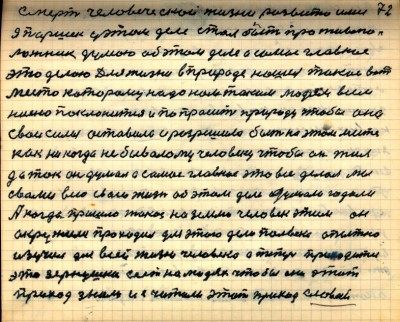 смерть человеческой жизни развито или 72
Я паршек в этом деле стал быть противопо-
ложник думаю об этом деле а самое главное
это делаю Для жизни в природе нашел такое вот
место которому надо нам таким людям всем
низко поклониться и попросить природу чтобы она
свои силы оставила и разрешила быть на этом месте
как никогда не бывалому человеку чтобы он жил
да так он думал а самое главное это все делал мы
с вами всю свою жизнь об этом деле думали гадали
А когда пришло такое на землю человек этим он
окружили проходил для этого дела полвека опытно
изучил для всей жизни человека а теперь приходится
это зернышка сеять на людях чтобы они этот
приход знали и я читали этот приход словой